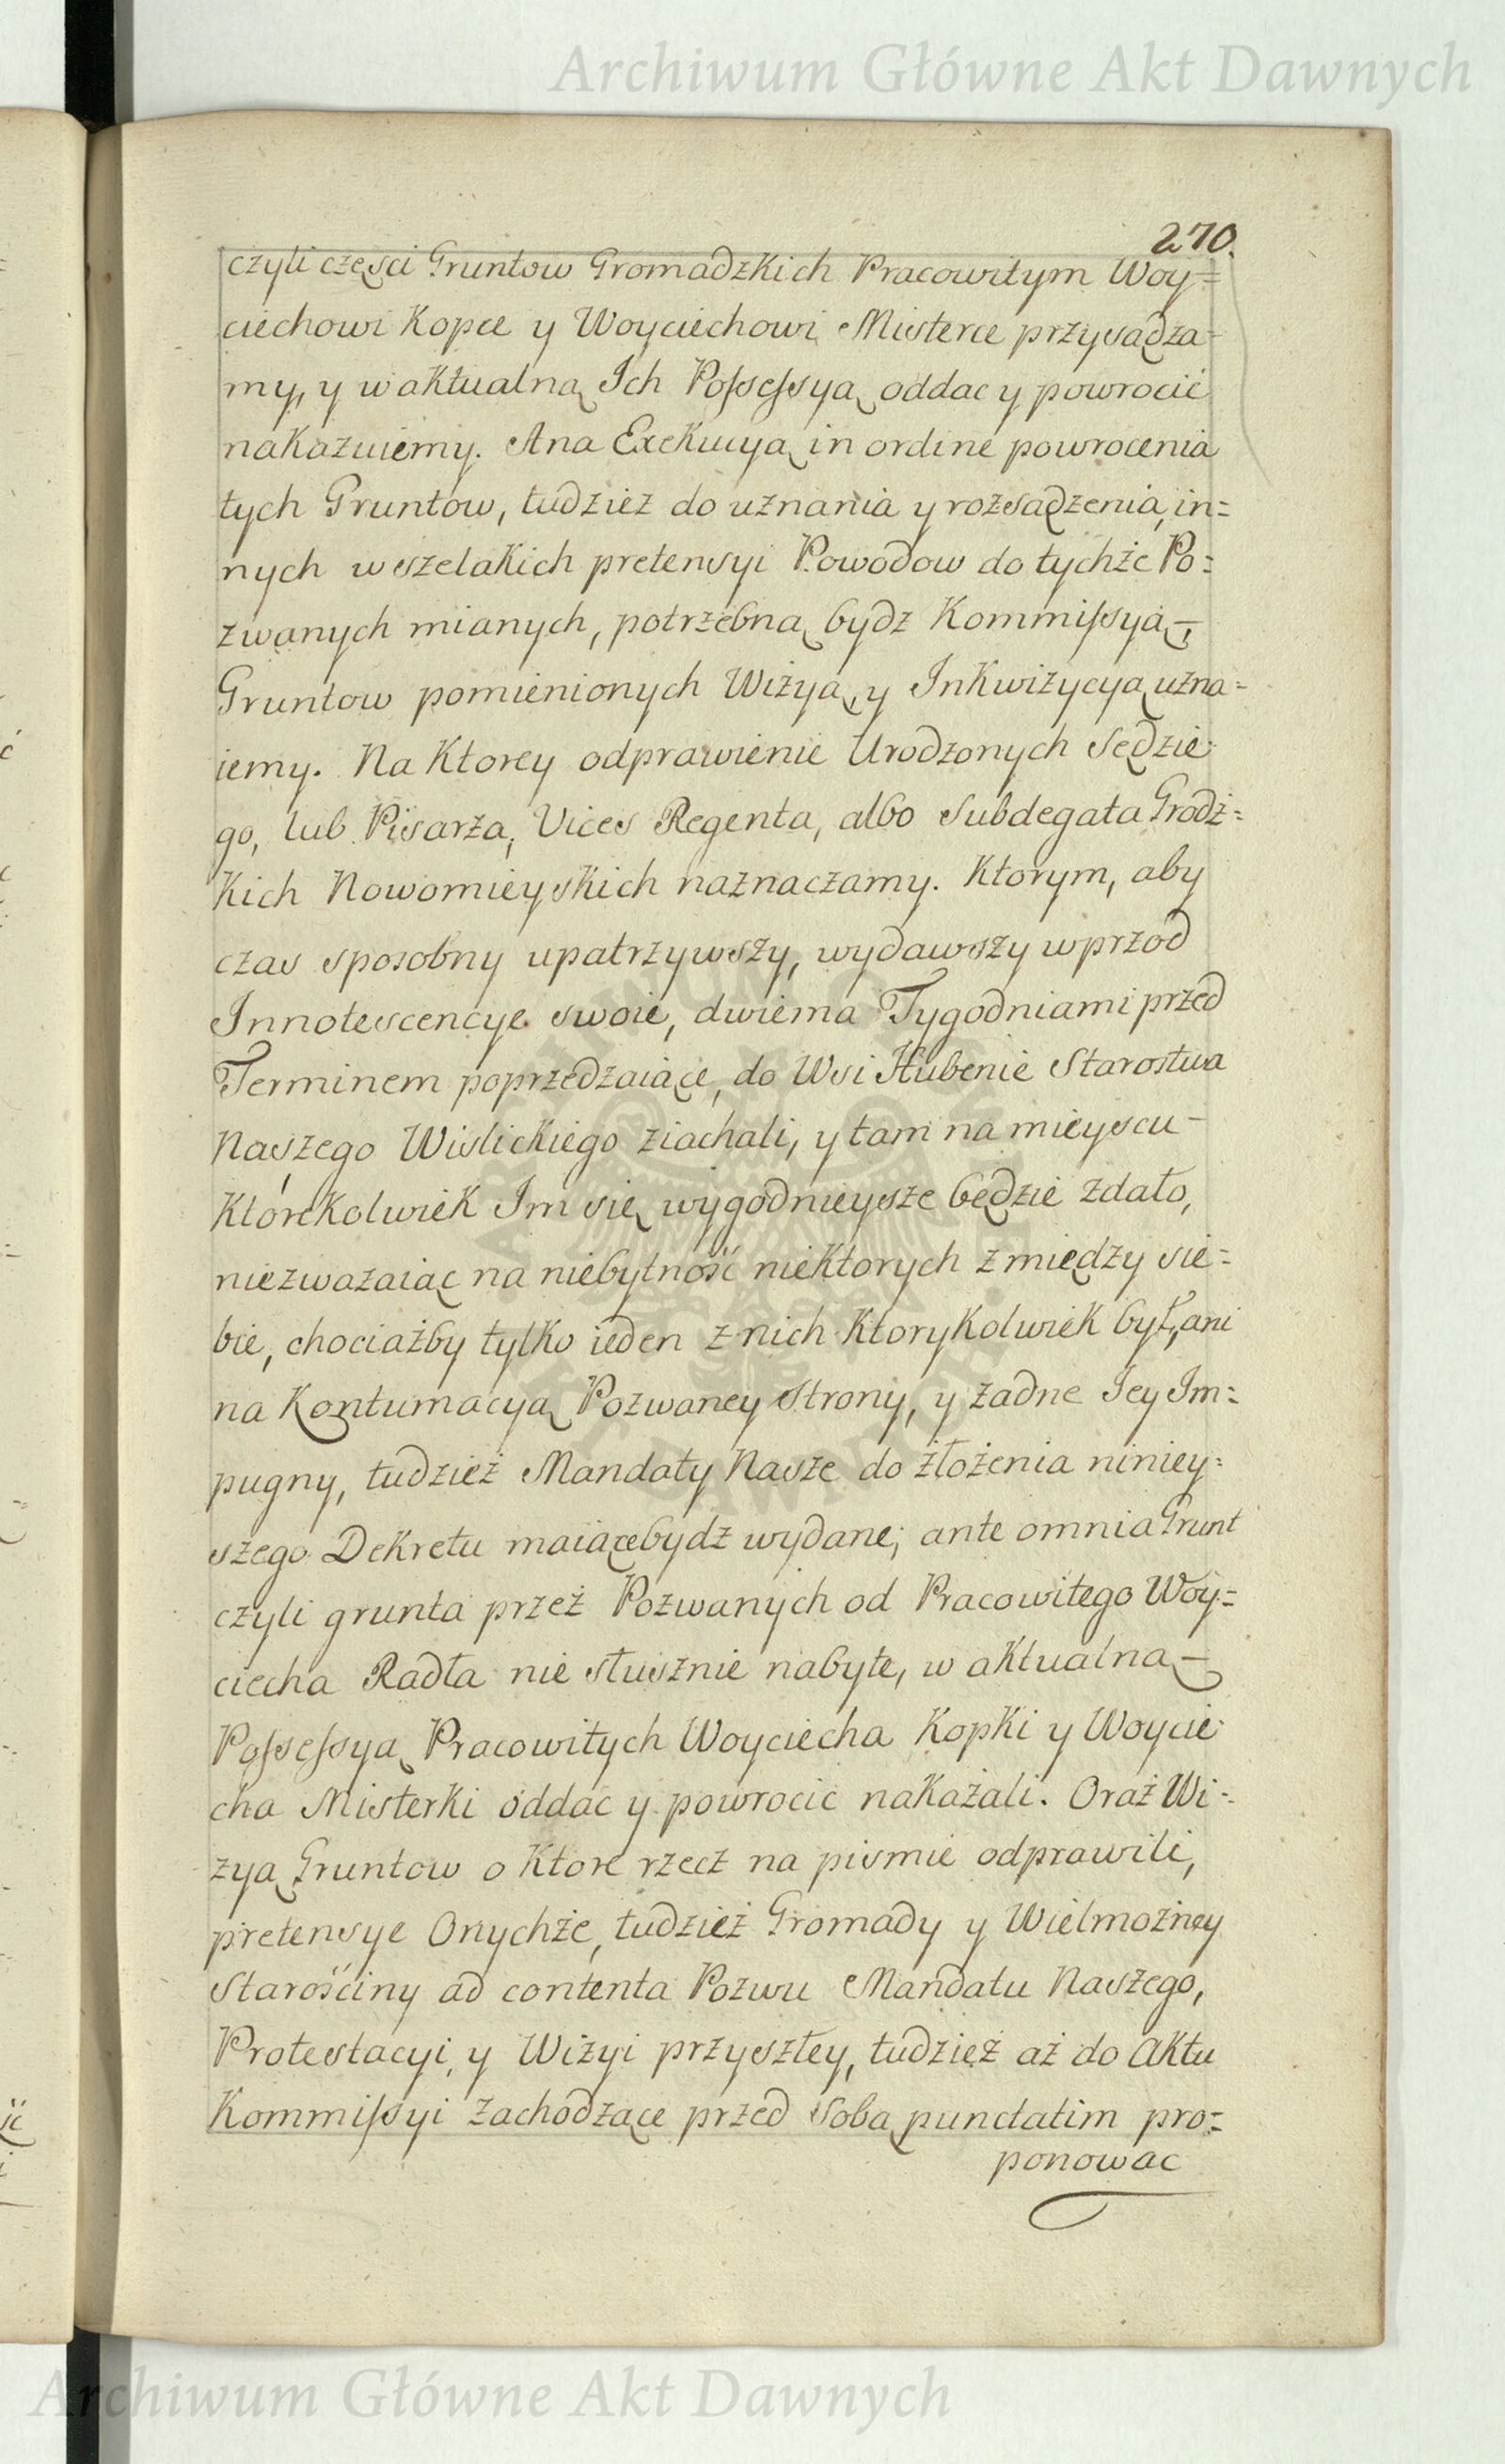 Archiwum Główne Akt Dawnych
270.
czyli częsci Gruntow Gromadzkich Pracowitym Woy=
ciechowi Kopce y Woyciechowi Misterce przysądza-
my, y w aktualną Ich Possessyą oddac y powrocić
nakazuiemy. A na Exekucyą in ordine powrocenia
tych Gruntow, tudziez do uznania y rozsądzenia, in=
nych wszelakich pretensyi Powodow do tychże Po=
zwanych mianych, potrzebną bydz Kommissyą,
Gruntow pomienionych Wiżyą, y Inkwizycyą uzna-
iemy. Na Ktorey odprawienie Urodzonych Sędzie
go, lub Pisarza, Vices Regenta, albo Subdegata Grodz=
kich Nowomieyskich naznaczamy. Ktorym, aby
czas sposobny upatrzywszy, wydawszy wprzod
Innotescencye swoie, dwiema Tygodniami przed
Terminem poprzedzaiące, do Wsi Hubenie Starostwa
Naszego Wislickiego ziachali, y tam na mieyscu
Ktorekolwiek Im się wygodnieysze będzie zdało,
niezwazaiąc na niebytność niektorych z między sie=
bie, chociażby tylko ieden z nich Ktorykolwiek był, ani
na Kontumacyą Pozwaney Strony, y żadne Iey Im=
pugny, tudzież Mandaty Nasze do złożenia niniey=
szego Dekretu maiące bydź wydane; ante omnia Grunt
czyli grunta przeż Pozwanych od Pracowitego Woy=
ciecha Radła nie słusznie nabyte, w aktualną
Possessyą Pracowitych Woyciecha Kopki y Woycie
cha Misterki oddac y powrocic nakażali. Oraż Wi-
zyą Gruntow o Ktore rzecz na pismie odprawili,
pretensye Onychże, tudzież Gromady y Wielmożney
Starościny ad contenta Pozwu Mandatu Naszego,
Protestacyi, y Wizyi przyszłey, tudzież aż do Aktu
Kommissyi zachodzące przed sobą punctatim pro=
ponowac
Archiwum Główne Akt Dawnych